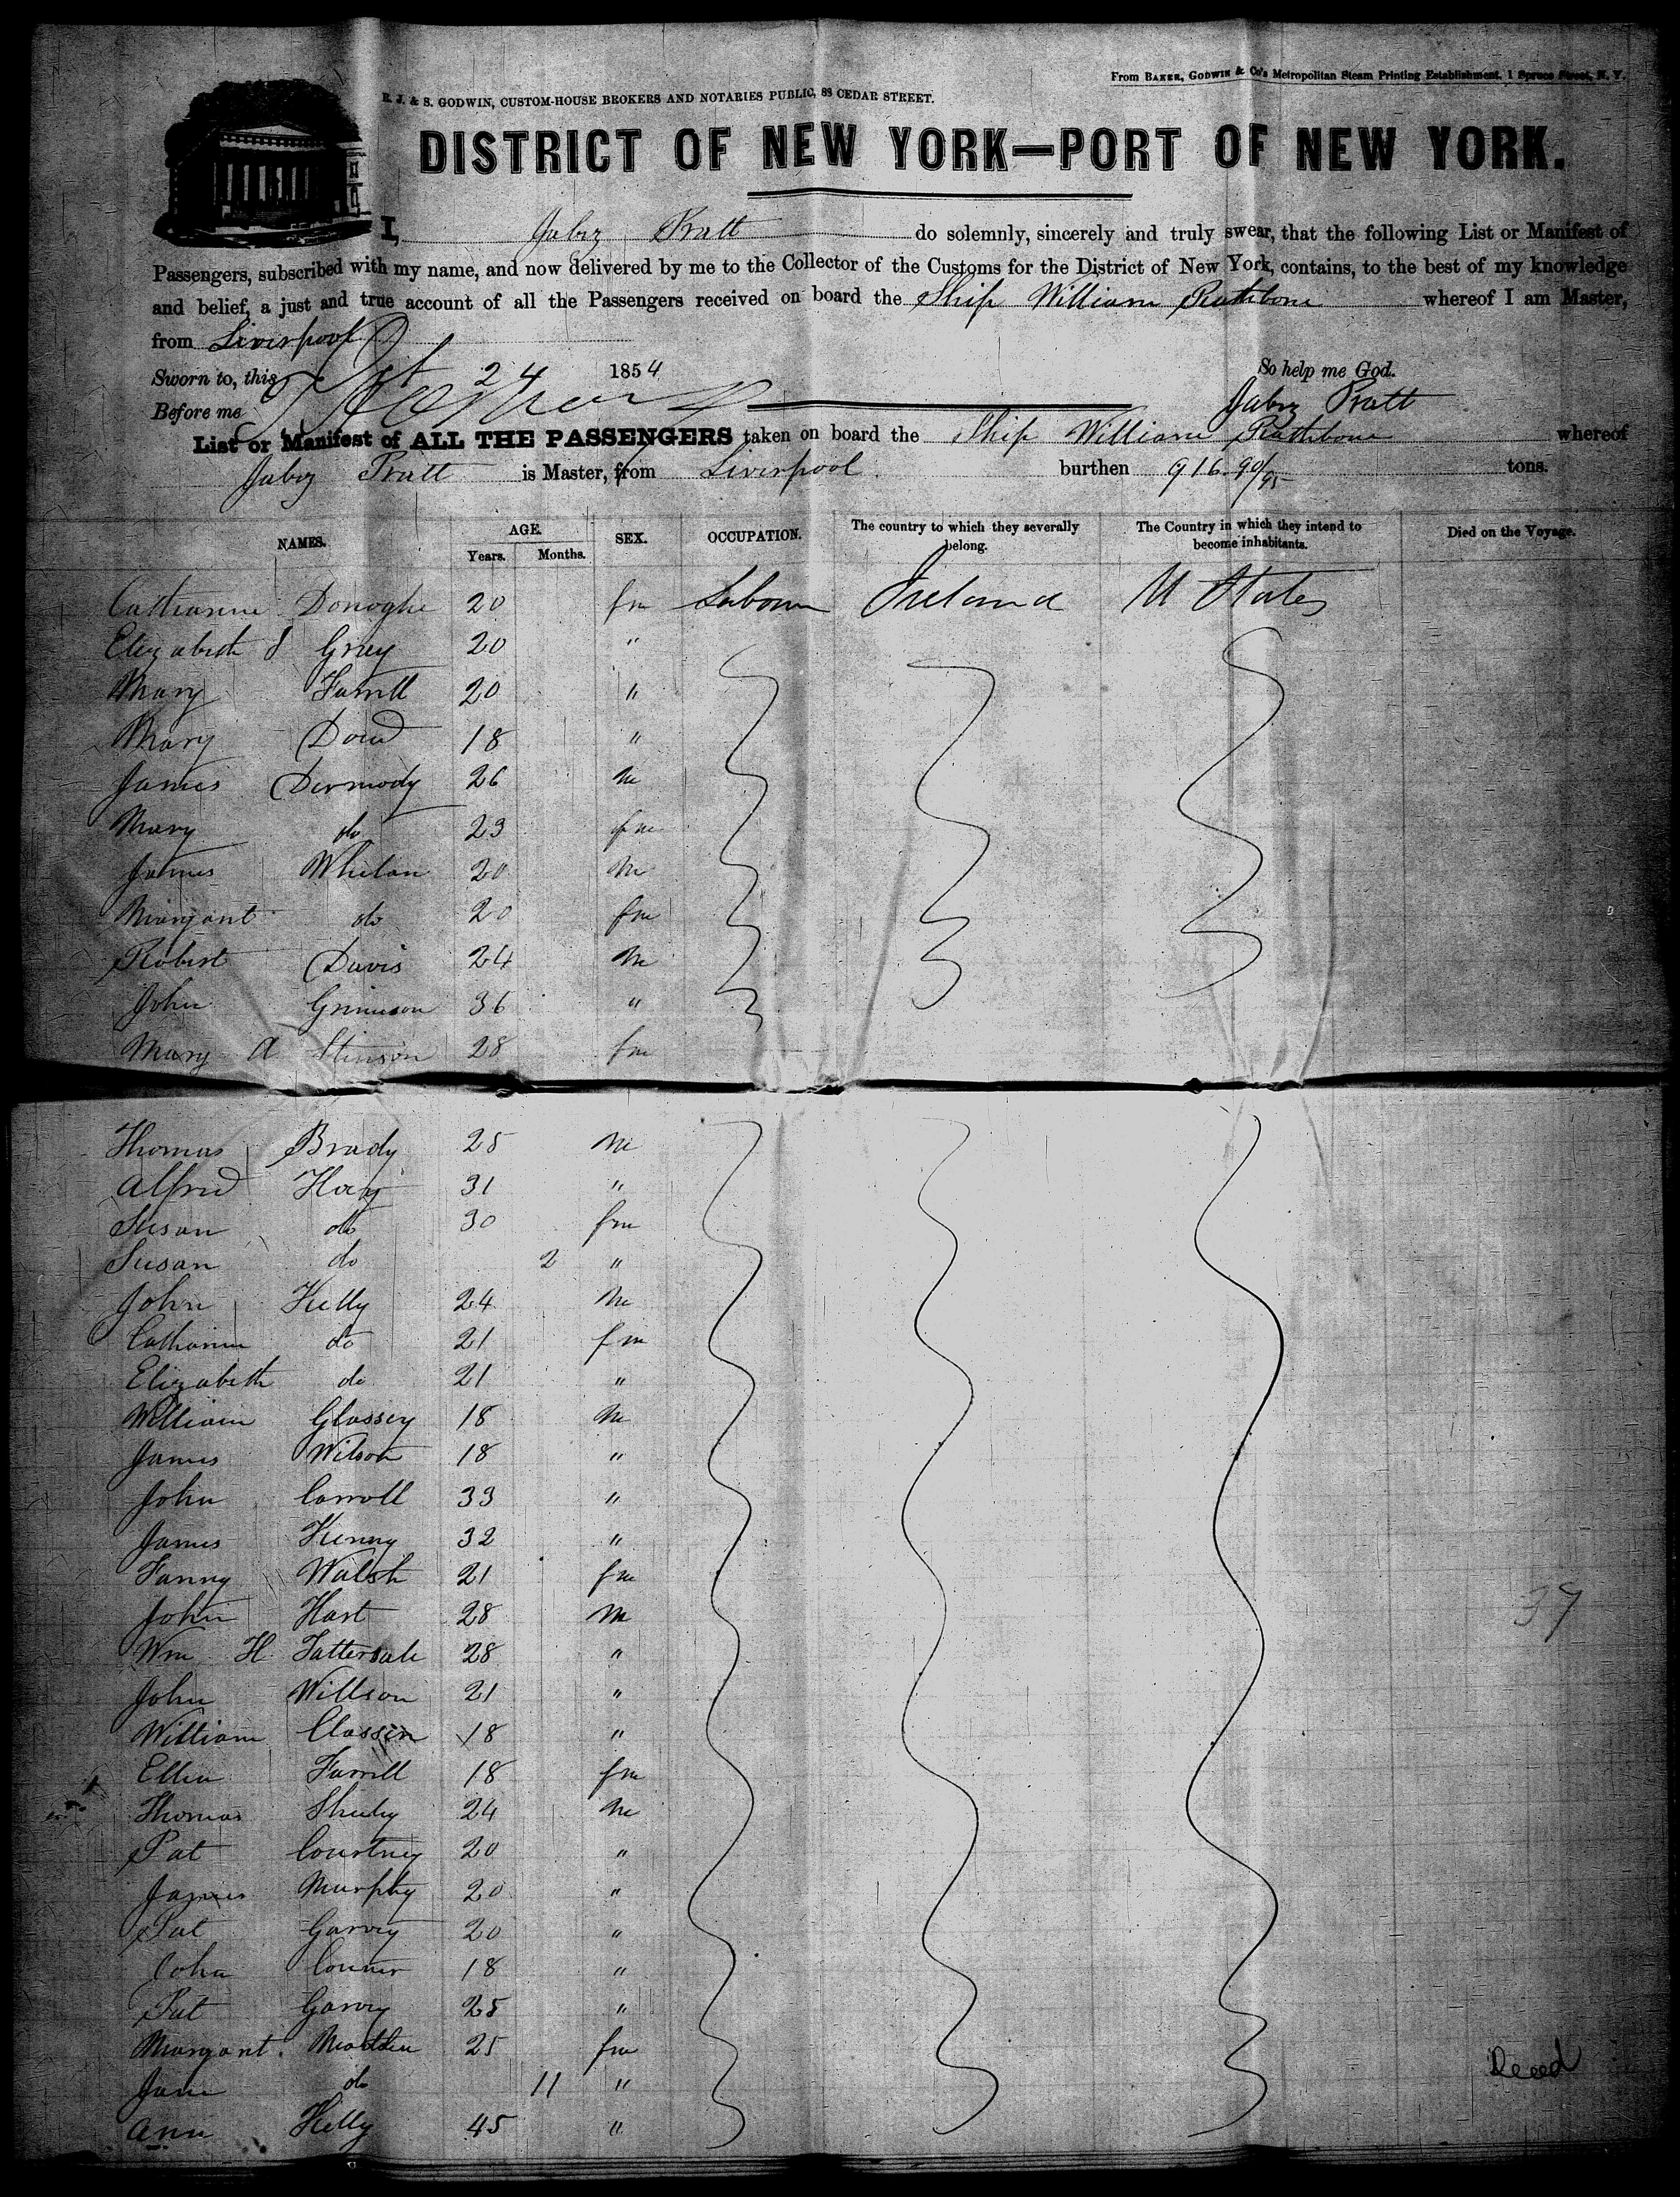 From BAKER, GODWIN & Co's Metropolitan Steam Printing Establishment, 1 Spruce Street, N. Y.
R. J. & S. GODWIN, CUSTOM-HOUSE BROKERS AND NOTARIES PUBLIC, 88 CEDAR STREET.
DISTRICT OF NEW YORK—PORT OF NEW YORK.
I, Jabez Pratt do solemnly, sincerely and truly swear, that the following List or Manifest of
Passengers, subscribed with my name, and now delivered by me to the Collector of the Customs for the District of New York, contains, to the best of my knowledge
and belief, a just and true account of all the Passengers received on board the Ship William Rathbone whereof I am Master,
from Liverpool
Sworn to, this 24 1854 So help me God.
Before me Jabez Pratt
List or Manifest of ALL THE PASSENGERS taken on board the Ship William Rathbone whereof
Jabez Pratt is Master, from Liverpool burthen 916 90/95 tons.
NAMES. AGE. Years. Months. SEX. OCCUPATION. The country to which they severally belong. The Country in which they intend to become inhabitants. Died on the Voyage.
Catharine Donoghe 20 fm Labourer Ireland U States
Elizabeth J Grey 20 "
Mary Farrell 20 "
Mary Dowd 18 "
James Dermody 26 m
Mary do 23 fm
James Whelan 20 m
Margaret do 20 fm
Robert Davis 24 m
John Grimison 36 "
Mary A Stinson 28 fm
Thomas Brady 25 m
Alfred Hoey 31 "
Susan do 30 fm
Susan do 2 "
John Kelly 24 m
Catharine do 21 fm
Elizabeth do 21 "
William Glassey 18 m
James Wilson 18 "
John Carroll 33 "
James Kenny 32 "
Fanny Walsh 21 fm
John Hart 28 m
37
Wm H Tattersale 28 "
John Willson 21 "
William Classen 18 "
Ellen Farrell 18 fm
Thomas Sheehy 24 m
Pat Courtney 20 "
James Murphy 20 "
Pat Garvey 20 "
John Connor 18 "
Pat Garvey 25 "
Margaret Madden 25 fm
Jane do 11 " Dead
Ann Kelly 45 "